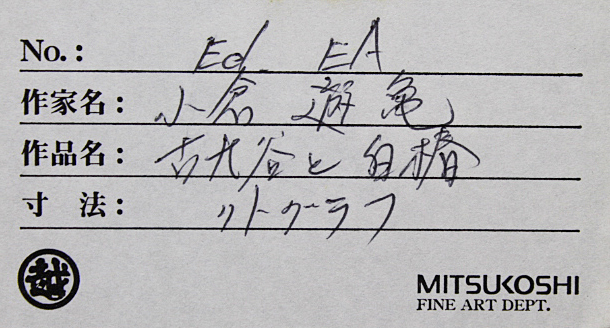 No.: Ed. EA
作家名: 小倉 遊亀
作品名: 古九谷と白椿
寸 法: リトグラフ
越
MITSUKOSHI
FINE ART DEPT.